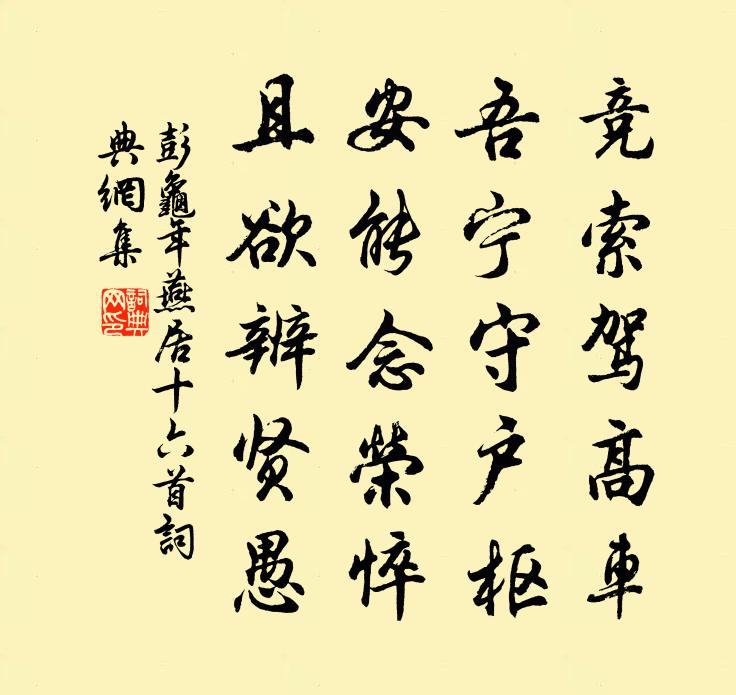 竞索驾高車
吾宁守户枢
安能念榮悴
且欲辨贤愚
彭龜年燕居十六首詞
典網集
詞典
网印